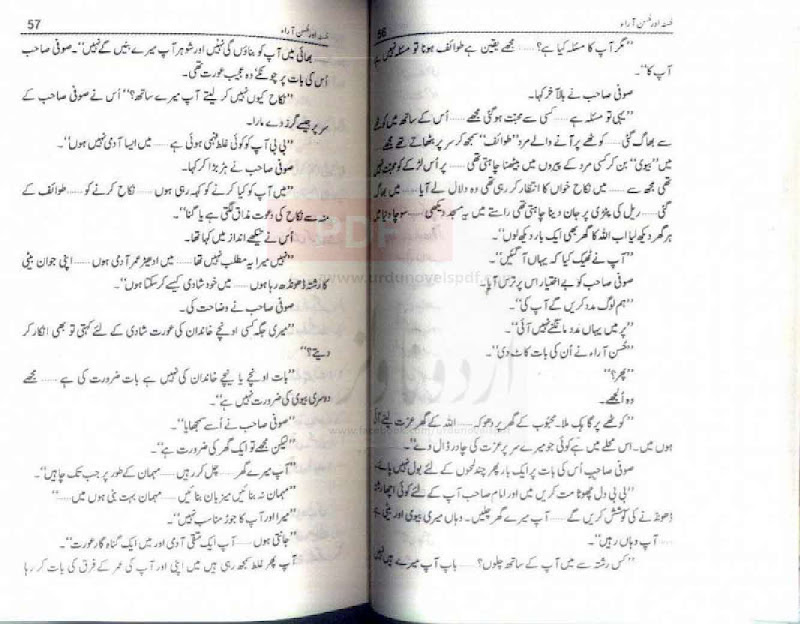 56
حُسنہ اور حُسن آراء
”مگر آپ کا مسئلہ کیا ہے؟...... مجھے یقین ہے طوائف ہونا تو مسئلہ نہیں ہے
آپ کا“۔
صوفی صاحب نے بالآخر کہا۔
”یہی تو مسئلہ ہے...... کسی سے محبت ہو گئی مجھے...... اُس کے ساتھ میں کوٹھے
سے بھاگ گئی...... کوٹھے پر آنے والے مرد ”طوائف“ سمجھ کر سر پر بٹھاتے تھے مجھے
میں ”بیوی“ بن کر کسی مرد کے پیروں میں بیٹھنا چاہتی تھی...... پر اُس لڑکے کو محبت نہیں
تھی مجھ سے...... میں نکاح خواں کا انتظار کر رہی تھی وہ دلال لے آیا...... میں بھاگ
گئی...... ریل کی پٹڑی پر جان دینا چاہتی تھی راستے میں یہ مسجد دیکھی...... سوچا دنیا میں
ہر گھر دیکھ لیا اب اللہ کا گھر بھی ایک بار دیکھ لوں“۔
”آپ نے ٹھیک کیا کہ یہاں آ گئیں“۔
صوفی صاحب کو بے اختیار اس پر ترس آیا۔
”ہم لوگ مدد کریں گے آپ کی“۔
”پر میں یہاں مدد مانگنے نہیں آئی“۔
حُسن آراء نے اُن کی بات کاٹ دی“۔
”پھر؟“
وہ اُلجھے۔
”کوٹھے پر گاہک ملا۔ محبوب کے گھر پر دھوکہ...... اللہ کے گھر عزت لینے آئی
ہوں میں۔ اس محلے میں ہے کوئی جو میرے سر پر عزت کی چادر ڈال دے“۔
صوفی صاحب اُس کی بات پر ایک بار پھر چند لمحوں کے لئے بول نہیں پائے۔
”بی بی دل چھوٹا مت کریں میں اور امام صاحب آپ کے لئے کوئی اچھا رشتہ
ڈھونڈنے کی کوشش کریں گے...... آپ میرے گھر چلیں۔ وہاں میری بیوی اور بیٹی ہے
...... آپ وہاں رہیں“۔
”کس رشتہ سے میں آپ کے ساتھ چلوں؟...... باپ آپ میرے ہیں نہیں
57
حُسنہ اور حُسن آراء
بھائی میں آپ کو بناؤں گی نہیں اور شوہر آپ میرے بنیں گے نہیں“۔ صوفی صاحب
اُس کی بات پر چونکے وہ عجیب عورت تھی۔
”نکاح کیوں نہیں کر لیتے آپ میرے ساتھ؟“ اُس نے صوفی صاحب کے
سر پر جیسے گرز دے مارا۔
”بی بی آپ کو کوئی غلط فہمی ہوئی ہے...... میں ایسا آدمی نہیں ہوں“۔
صوفی صاحب نے ہڑبڑا کر کہا۔
”میں آپ کو کیا کرنے کو کہہ رہی ہوں...... نکاح کرنے کو...... طوائف کے
منہ سے نکاح کی دعوت مذاق لگتی ہے یا گناہ“۔
اُس نے تیکھے انداز میں کہا تھا۔
”نہیں میرا یہ مطلب نہیں تھا...... میں ادھیڑ عمر آدمی ہوں...... اپنی جوان بیٹی
کا رشتہ ڈھونڈھ رہا ہوں...... میں خود شادی کیسے کر سکتا ہوں“۔
صوفی صاحب نے وضاحت کی۔
”میری جگہ کسی اونچے خاندان کی عورت شادی کے لئے کہتی تو بھی انکار کر
دیتے؟“
”بات اونچے یا نیچے خاندان کی نہیں ہے بات ضرورت کی ہے...... مجھے
دوسری بیوی کی ضرورت نہیں ہے“۔
صوفی صاحب نے اُسے سمجھایا“۔
”لیکن مجھے تو ایک گھر کی ضرورت ہے“۔
”آپ میرے گھر...... چل کر رہیں...... مہمان کے طور پر جب تک چاہیں“۔
”مہمان نہ بنائیں میزبان بنائیں...... مہمان بہت بنی ہوں میں......“
”میرا اور آپ کا جوڑ مناسب نہیں“۔
”جانتی ہوں...... آپ ایک متقی آدمی اور میں ایک گناہ گار عورت“۔
آپ پھر غلط سمجھ رہی ہیں میں اپنی اور آپ کی عمر کے فرق کی بات کر رہا
PDF
www.urdunovelspdf.com